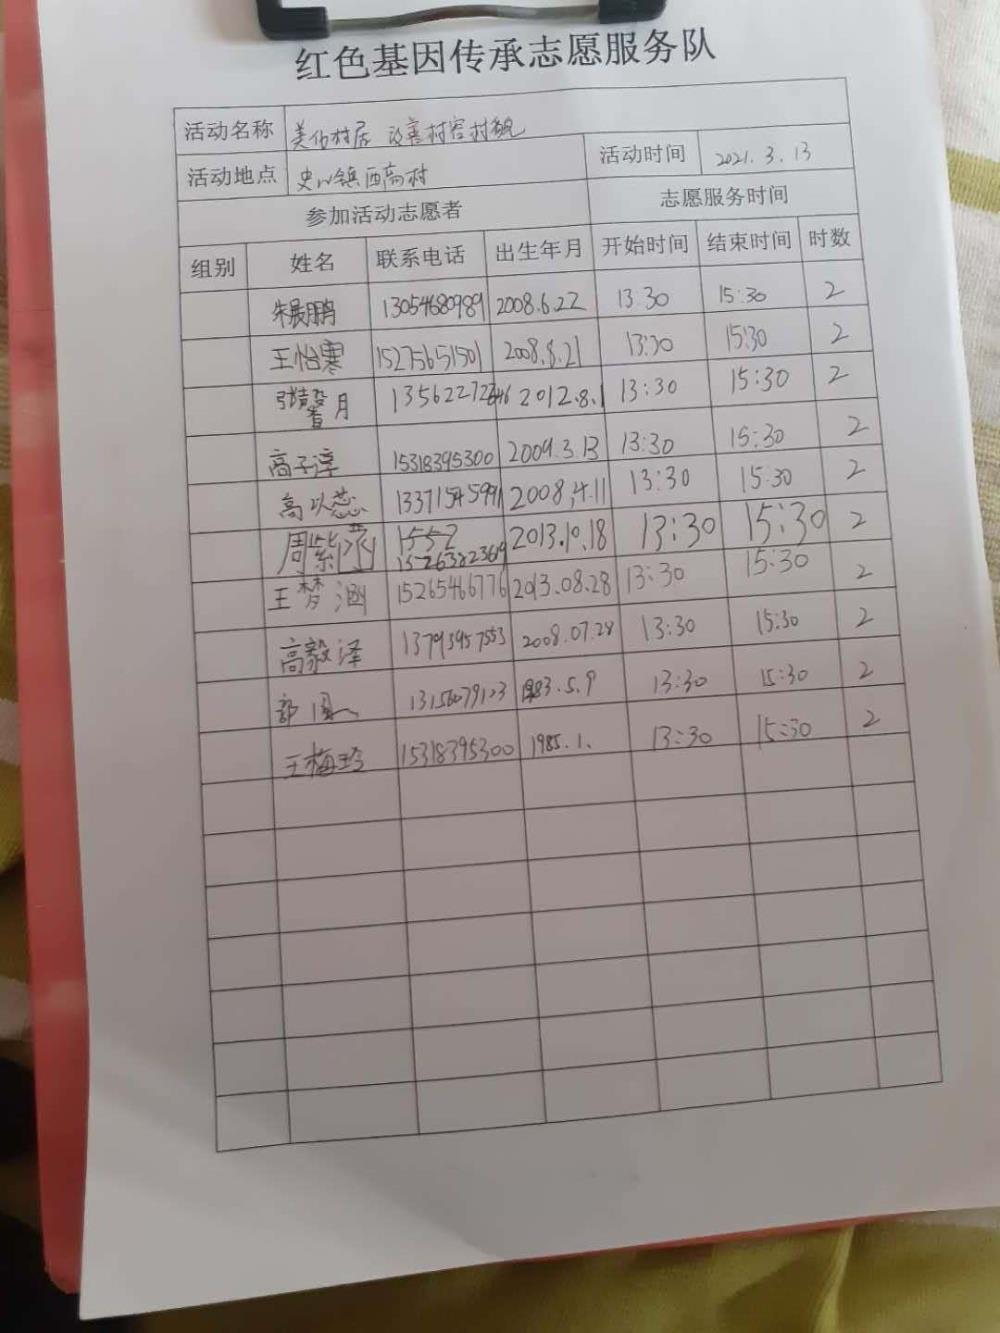 红色基因传承志愿服务队
活动名称 美化村居 改善村容村貌
活动地点 史口镇西商村 活动时间 2021.3.13
参加活动志愿者 志愿服务时间
组别 姓名 联系电话 出生年月 开始时间 结束时间 时数
朱展鹏 13054680989 2008.6.22 13:30 15:30 2
王怡寒 15275651501 2008.8.21 13:30 15:30 2
月 2012.8.1 13:30 15:30 2
高子淳 15318395300 2009.3.13 13:30 15:30 2
高以蕊 13371545991 2008.4.11 13:30 15:30 2
周紫涵 1552 2013.10.18 13:30 15:30 2
王梦涵 15265466776 2013.08.28 13:30 15:30 2
高毅泽 13793957553 2008.07.28 13:30 15:30 2
郭 13156079123 1983.5.9 13:30 15:30 2
王梅玲 15318395300 1985.1. 13:30 15:30 2